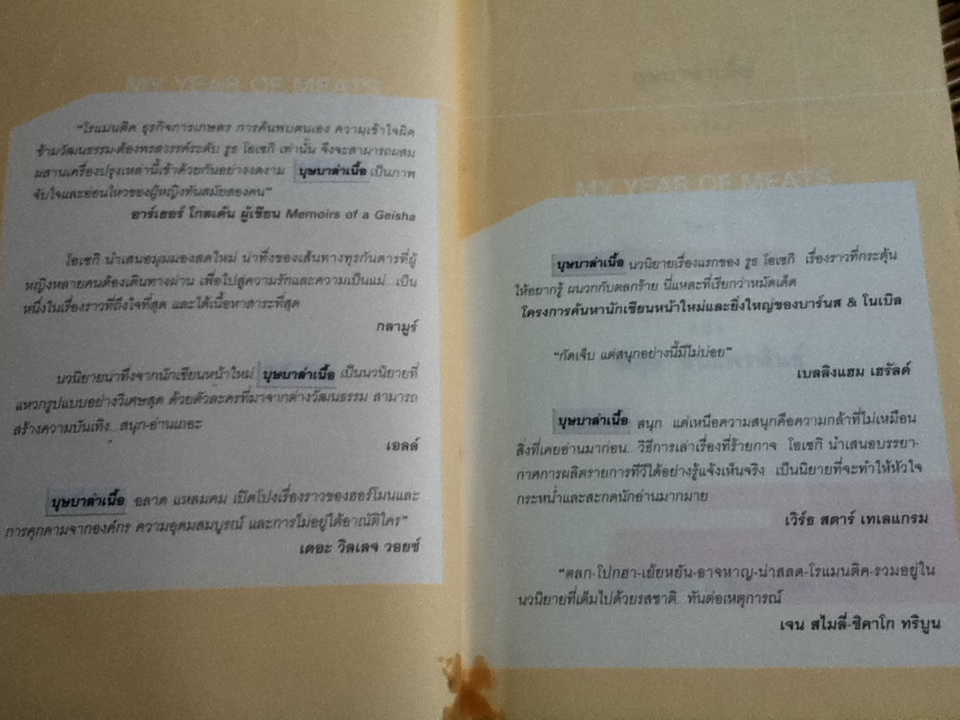 MY YEAR OF MEATS
"โรแมนติค ธุรกิจการเกษตร การค้นพบตนเอง ความเข้าใจผิด
ข้ามวัฒนธรรม-ต้องพรสวรรค์ระดับ รูธ โอเซกิ เท่านั้น จึงจะสามารถผสม
ผสานเครื่องปรุงเหล่านี้เข้าด้วยกันอย่างงดงาม บุษบาล่าเนื้อ เป็นภาพ
จับใจและอ่อนไหวของผู้หญิงทันสมัยสองคน"
อาร์เธอร์ โกลเด้น ผู้เขียน Memoirs of a Geisha
โอเซกิ นำเสนอมุมมองสดใหม่ น่าทึ่งของเส้นทางทุรกันดารที่ผู้
หญิงหลายคนต้องเดินทางผ่าน เพื่อไปสู่ความรักและความเป็นแม่...เป็น
หนึ่งในเรื่องราวที่ถึงใจที่สุด และได้เนื้อหาสาระที่สุด
กลามูร์
นวนิยายน่าทึ่งจากนักเขียนหน้าใหม่ บุษบาล่าเนื้อ เป็นนวนิยายที่
แหวกรูปแบบอย่างวิเศษสุด ด้วยตัวละครที่มาจากต่างวัฒนธรรม สามารถ
สร้างความบันเทิง...สนุก-อ่านเถอะ
เอลล์
บุษบาล่าเนื้อ ฉลาด แหลมคม เปิดโปงเรื่องราวของฮอร์โมนและ
การคุกคามจากองค์กร ความอุดมสมบูรณ์ และการไม่อยู่ใต้อาณัติใคร"
เดอะ วิลเลจ วอยซ์
MY YEAR OF MEATS
บุษบาล่าเนื้อ นวนิยายเรื่องแรกของ รูธ โอเซกิ เรื่องราวที่กระตุ้น
ให้อยากรู้ ผนวกกับตลกร้าย นี่แหละที่เรียกว่าหมัดเด็ด
โครงการค้นหานักเขียนหน้าใหม่และยิ่งใหญ่ของบาร์นส & โนเบิล
"กัดเจ็บ แต่สนุกอย่างนี้มีไม่บ่อย"
เบลลิงแฮม เฮรัลด์
บุษบาล่าเนื้อ สนุก แต่เหนือความสนุกคือความกล้าที่ไม่เหมือน
สิ่งที่เคยอ่านมาก่อน...วิธีการเล่าเรื่องที่ร้ายกาจ โอเซกิ นำเสนอบรรยา-
กาศการผลิตรายการทีวีได้อย่างรู้แจ้งเห็นจริง เป็นนิยายที่จะทำให้หัวใจ
กระหน่ำและสะกดนักอ่านมากมาย
เวิร์ธ สตาร์ เทเลแกรม
"ตลก-โปกฮา-เย้ยหยัน-อาจหาญ-น่าสลด-โรแมนติค-รวมอยู่ใน
นวนิยายที่เต็มไปด้วยรสชาติ...ทันต่อเหตุการณ์
เจน สไมลี่-ชิคาโก ทริบูน